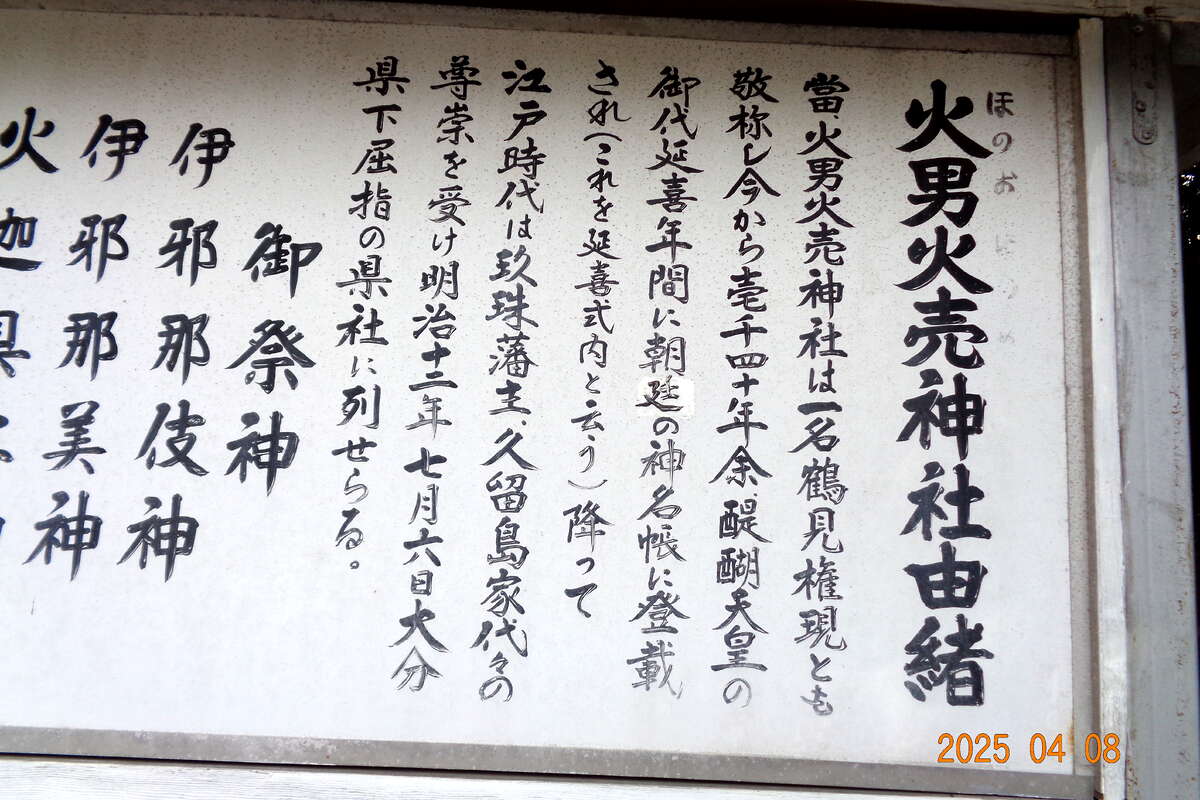 火男火売神社由緒
ほのお ほのめ
當、火男火売神社は一名鶴見権現とも
敬称し今から壱千四十年余、醍醐天皇の
御代延喜年間に朝廷の神名帳に登載
され(これを延喜式内と云う)降って
江戸時代は玖珠藩主、久留島家代々の
尊崇を受け明治十二年七月六日大分
県下屈指の県社に列せらる。
御祭神
伊邪那伎神
伊邪那美神
火迦具
2025 04 08